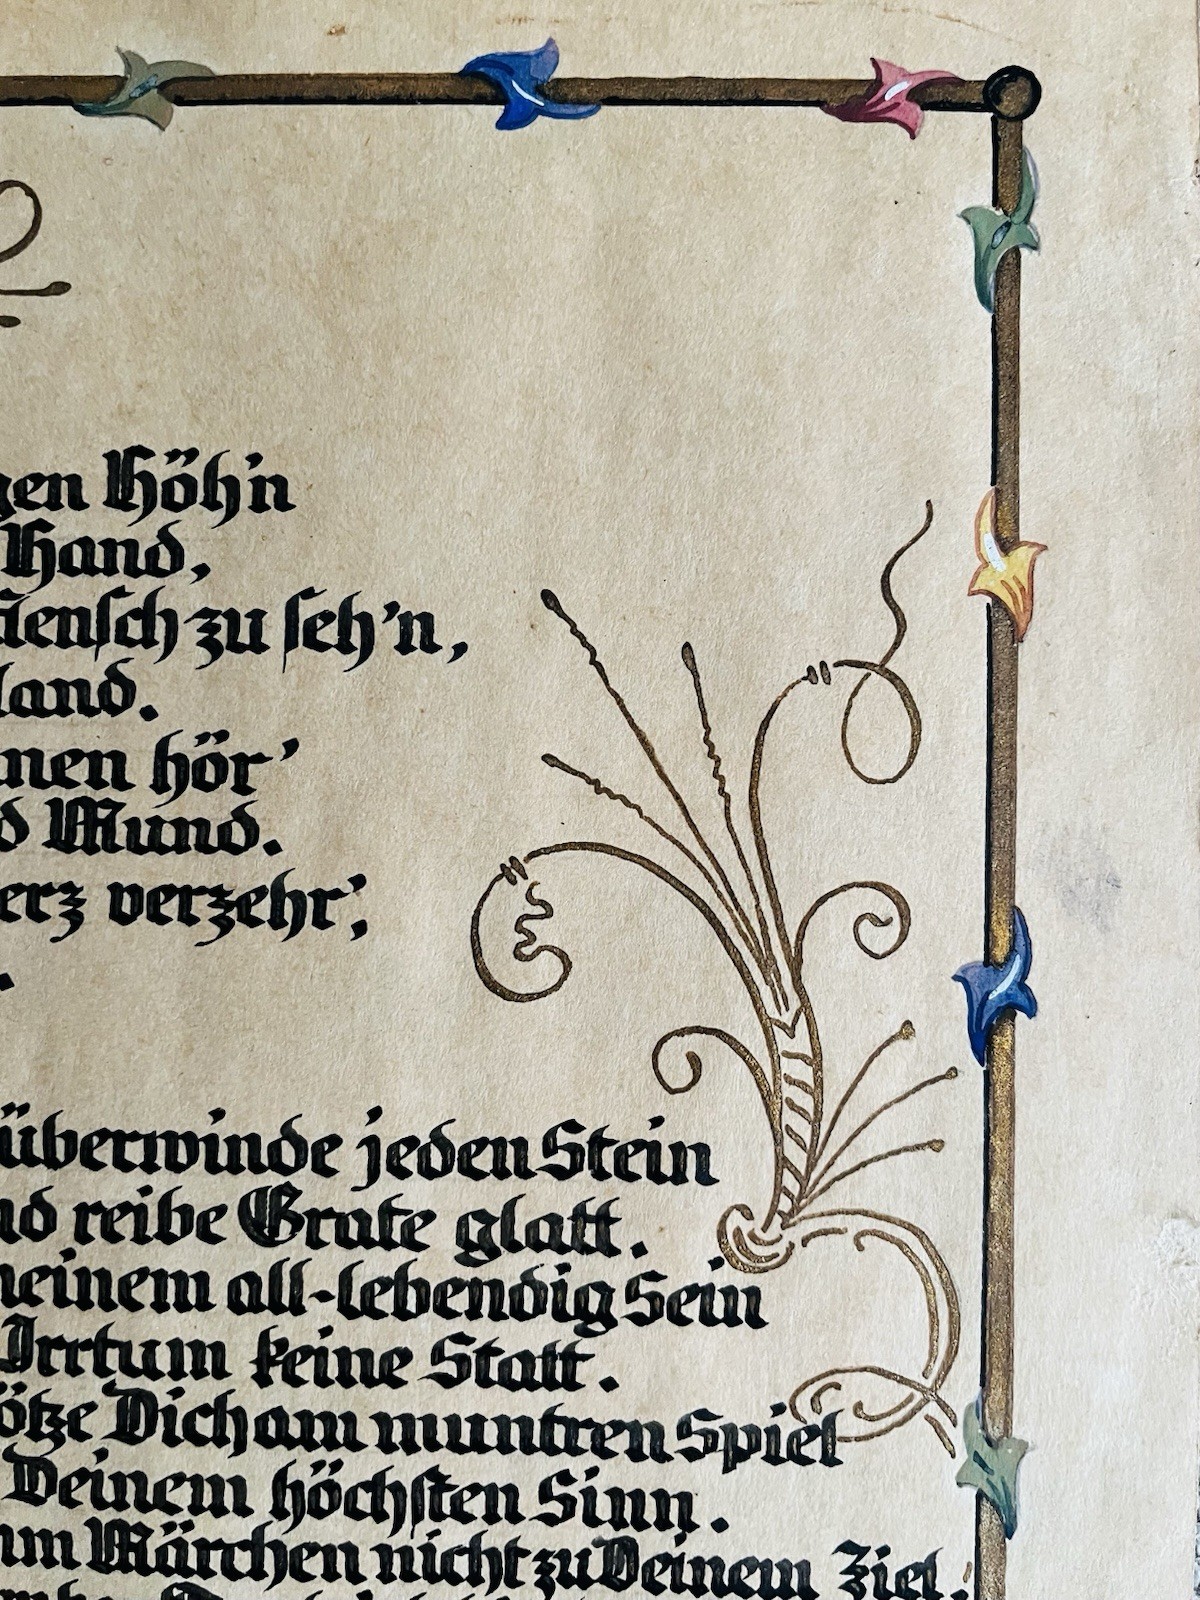 gen Höh'n
Hand,
ensch zu seh'n,
land.
nen hör'
d Mund.
erz verzehr',
.
überwinde jeden Stein
nd reibe Grate glatt.
meinem all-lebendig Sein
Irrtum keine Statt.
ötze Dich am muntren Spiel
Deinem höchsten Sinn.
um Märchen nicht zu Deinem Ziel,